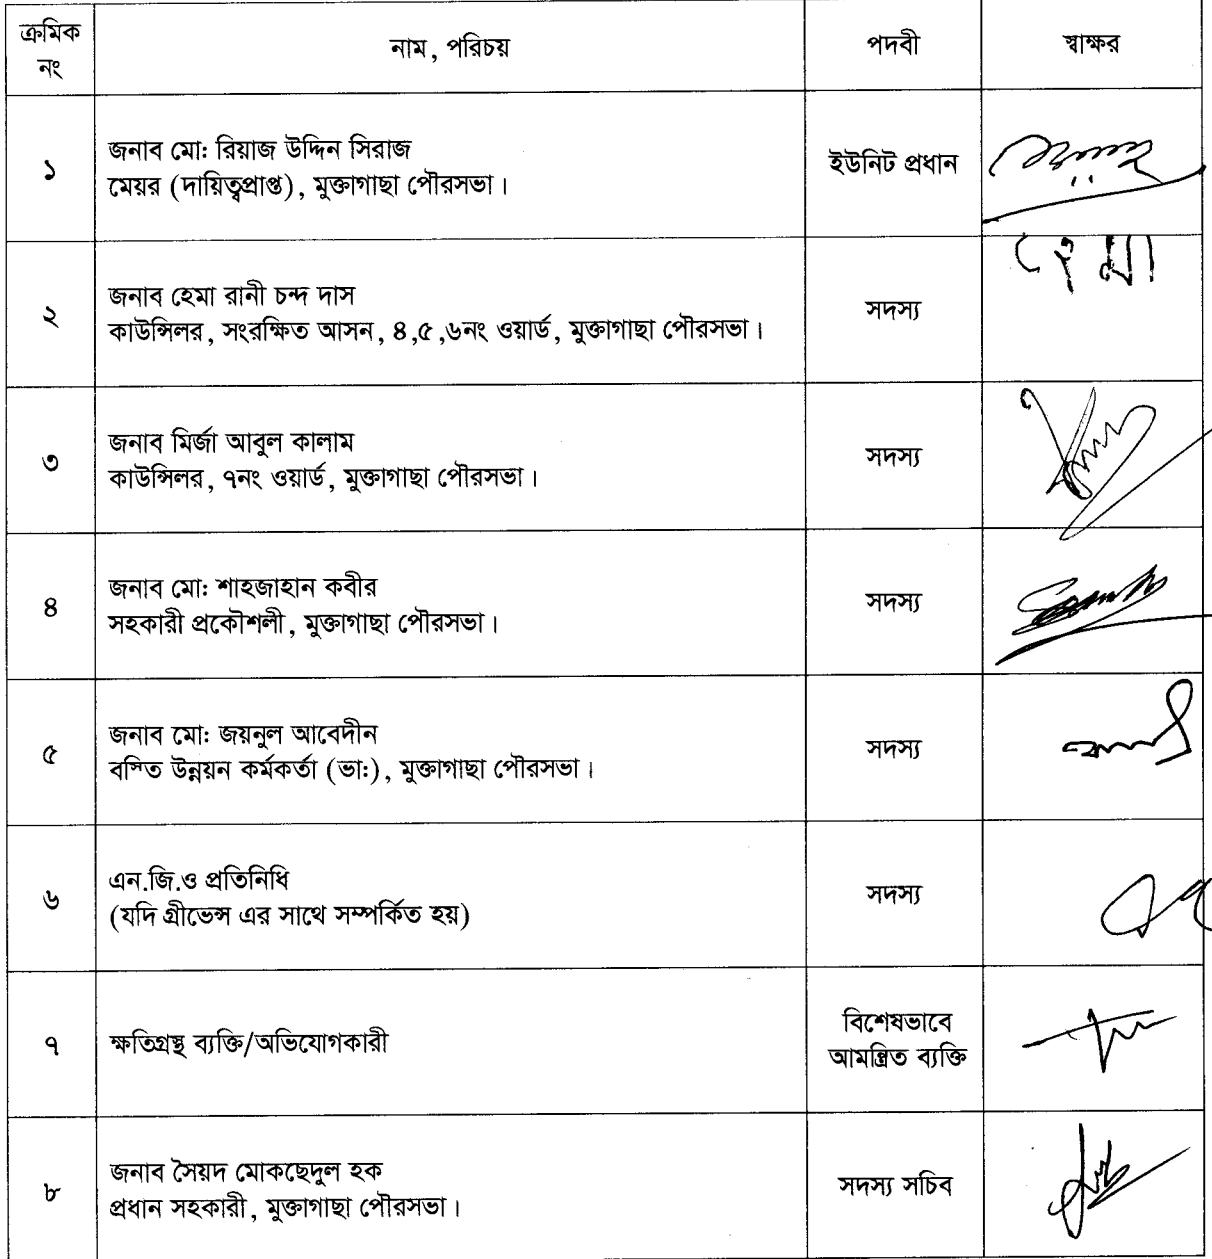 ক্রমিক নং নাম, পরিচয় পদবী স্বাক্ষর
১ জনাব মো: রিয়াজ উদ্দিন সিরাজ
মেয়র (দায়িত্বপ্রাপ্ত), মুক্তাগাছা পৌরসভা। ইউনিট প্রধান
২ জনাব হেমা রানী চন্দ দাস
কাউন্সিলর, সংরক্ষিত আসন, ৪,৫,৬নং ওয়ার্ড, মুক্তাগাছা পৌরসভা। সদস্য হেমা
৩ জনাব মির্জা আবুল কালাম
কাউন্সিলর, ৭নং ওয়ার্ড, মুক্তাগাছা পৌরসভা। সদস্য
৪ জনাব মো: শাহজাহান কবীর
সহকারী প্রকৌশলী, মুক্তাগাছা পৌরসভা। সদস্য
৫ জনাব মো: জয়নুল আবেদীন
বস্তি উন্নয়ন কর্মকর্তা (ভা:), মুক্তাগাছা পৌরসভা। সদস্য
৬ এন.জি.ও প্রতিনিধি
(যদি গ্রীভেন্স এর সাথে সম্পর্কিত হয়) সদস্য
৭ ক্ষতিগ্রস্থ ব্যক্তি/অভিযোগকারী বিশেষভাবে
আমন্ত্রিত ব্যক্তি
৮ জনাব সৈয়দ মোকছেদুল হক
প্রধান সহকারী, মুক্তাগাছা পৌরসভা। সদস্য সচিব